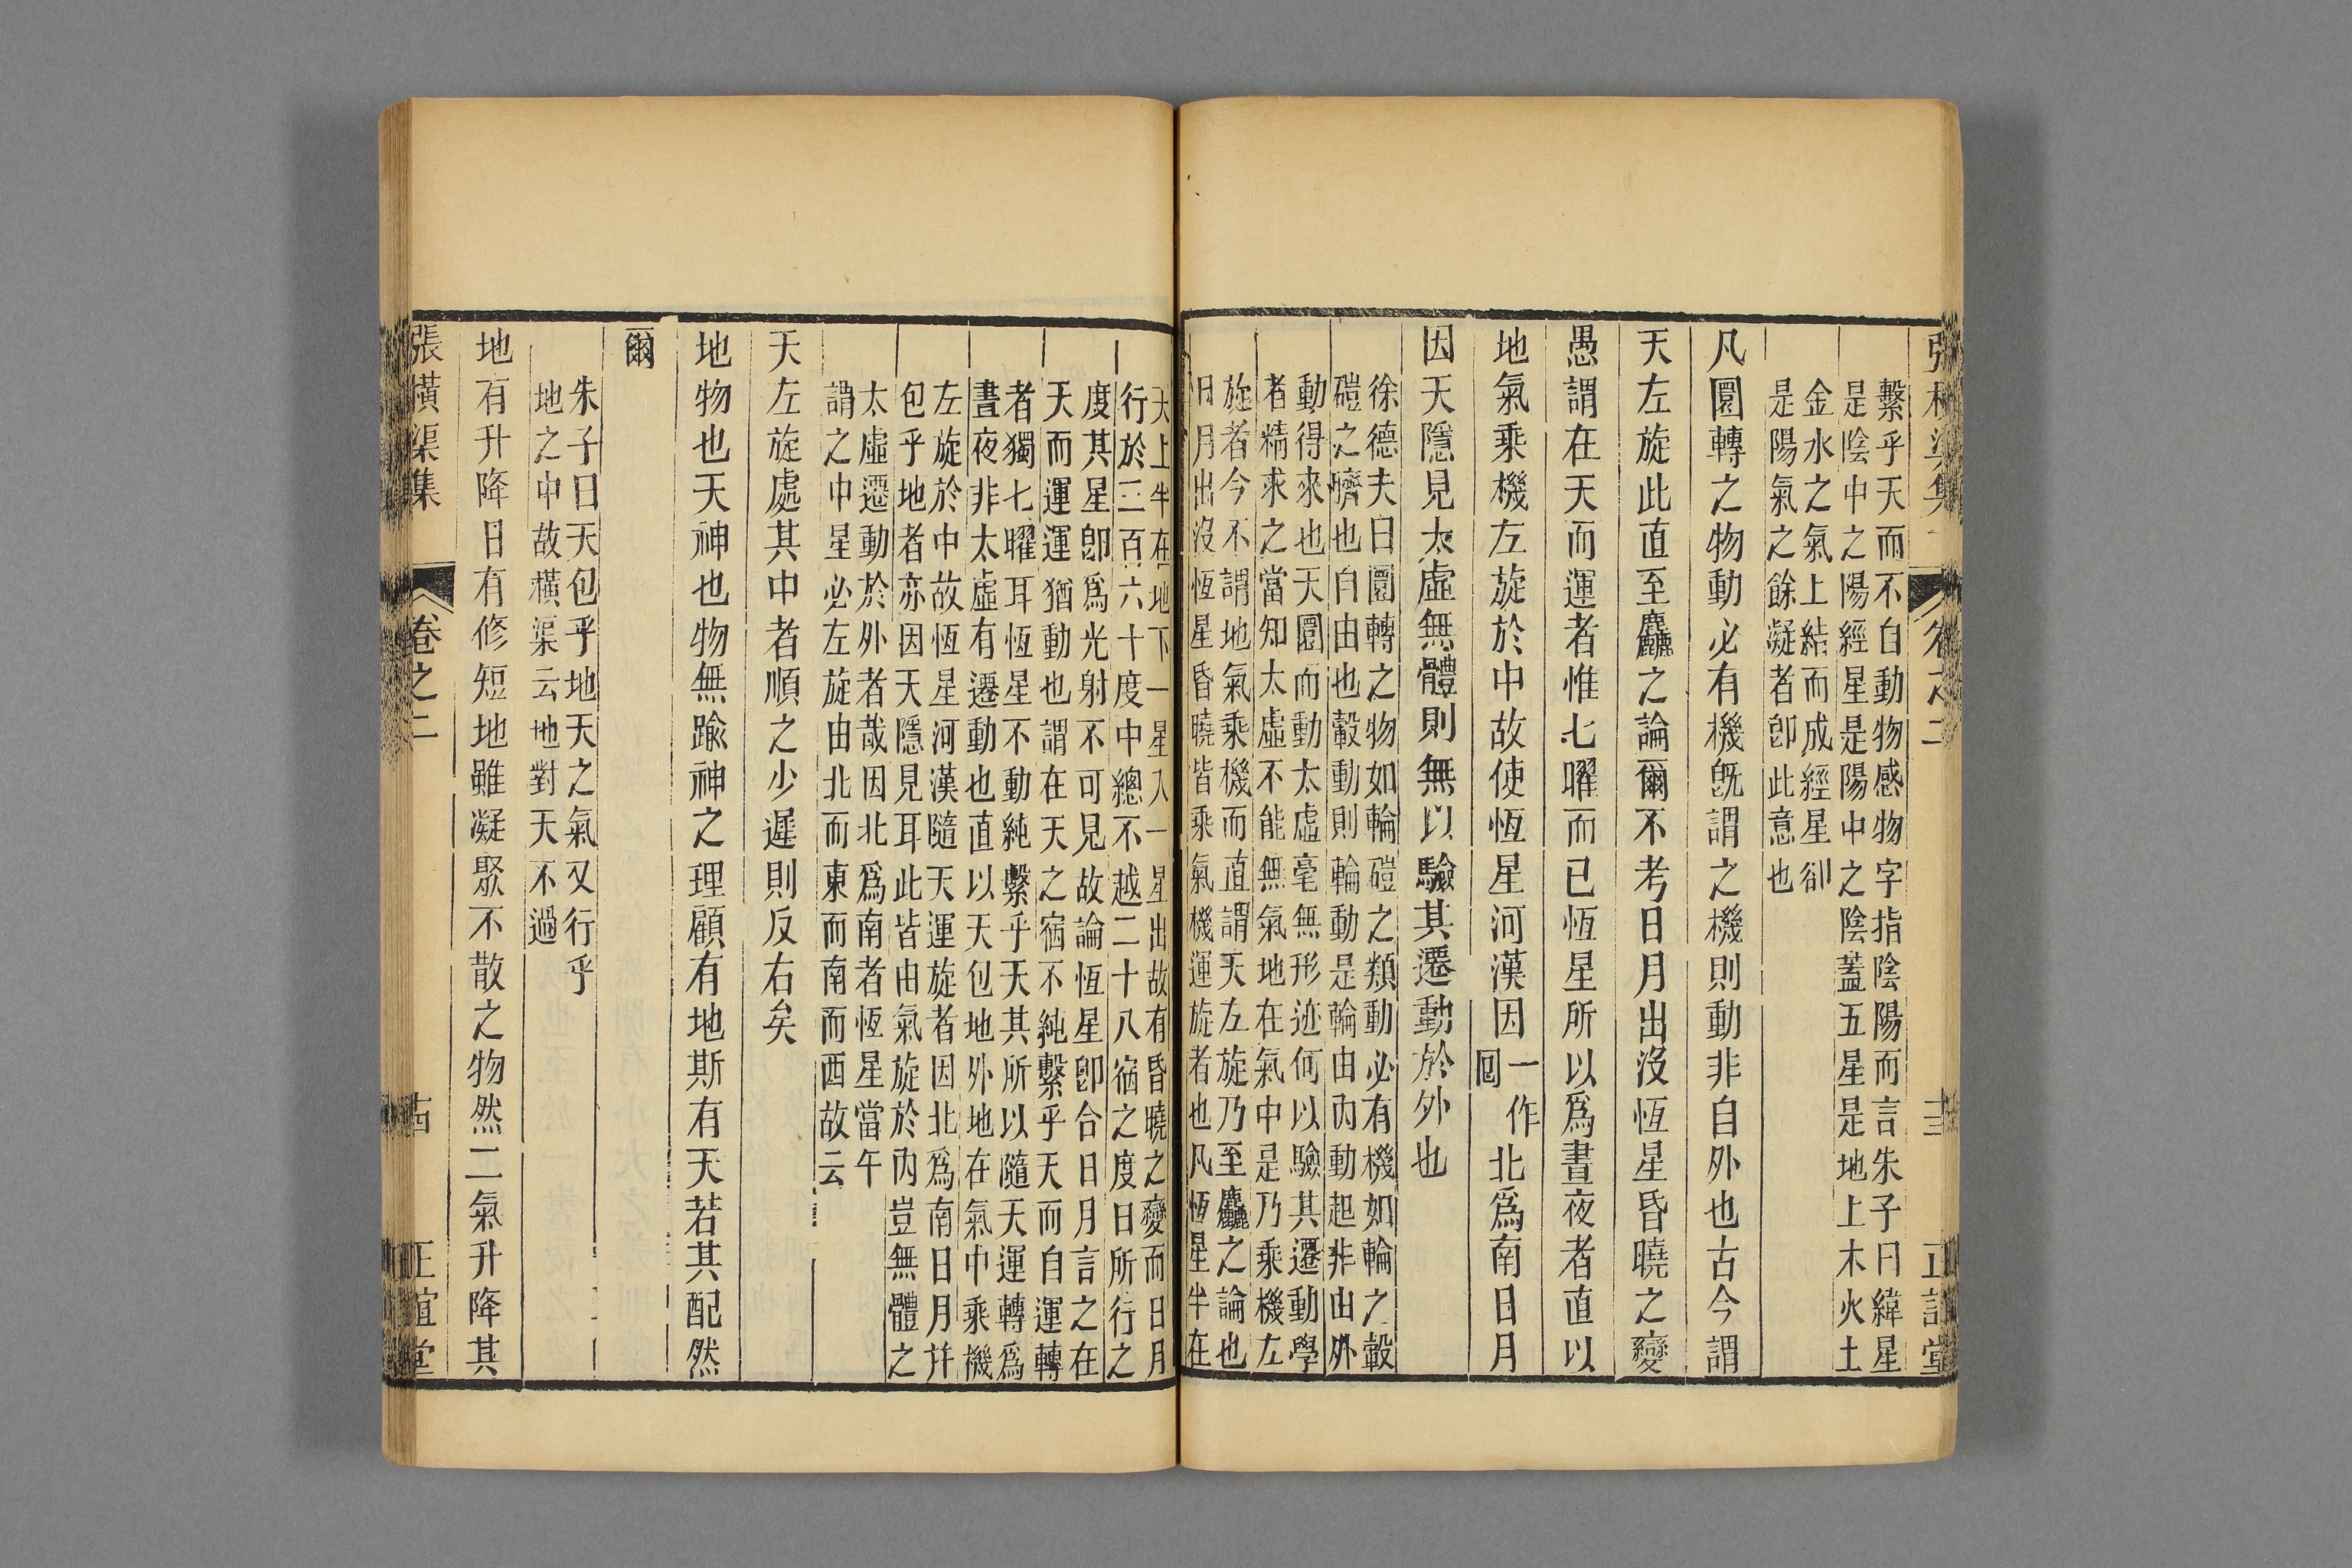 張橫渠集
卷之二
正誼堂
繫乎天而不自動物感物字指陰陽而言朱子曰緯星
是陰中之陽經星是陽中之陰蓋五星是地上木火土
金水之氣上結而成經星卻
是陽氣之餘凝者卽此意也
凡圜轉之物動必有機旣謂之機則動非自外也古今謂
天左旋此直至麤之論爾不考日月出沒恆星昏曉之變
愚謂在天而運者惟七曜而已恆星所以爲晝夜者直以
地氣乘機左旋於中故使恆星河漢因一作囘北爲南日月
因天隱見太虛無體則無以驗其遷動於外也
徐德夫曰圜轉之物如輪磑之類動必有機如輪之轂
磑之臍也自由也轂動則輪動是輪由內動起非由外
動得來也天圜而動太虛毫無形迹何以驗其遷動學
者精求之當知太虛不能無氣地在氣中是乃乘機左
旋者今不謂地氣乘機而直謂天左旋乃至麤之論也
日月出沒恆星昏曉皆乘氣機運旋者也凡恆星半在
天上半在地下一星入一星出故有昏曉之變而日月
行於三百六十度中總不越二十八宿之度日所行之
度其星卽爲光射不可見故論恆星卽合日月言之在
天而運運猶動也謂在天之宿不純繫乎天而自運轉
者獨七曜耳恆星不動純繫乎天其所以隨天運轉爲
晝夜非太虛有遷動也直以天包地外地在氣中乘機
左旋於中故恆星河漢隨天運旋者因北爲南日月幷
包乎地者亦因天隱見耳此皆由氣旋於內豈無體之
太虛遷動於外者哉因北爲南者恆星當午
謂之中星必左旋由北而東而南而西故云
天左旋處其中者順之少遲則反右矣
地物也天神也物無踰神之理顧有地斯有天若其配然
爾
朱子曰天包乎地天之氣又行乎
地之中故橫渠云地對天不過
地有升降日有修短地雖凝聚不散之物然二氣升降其
張橫渠集
卷之二
古
正誼堂